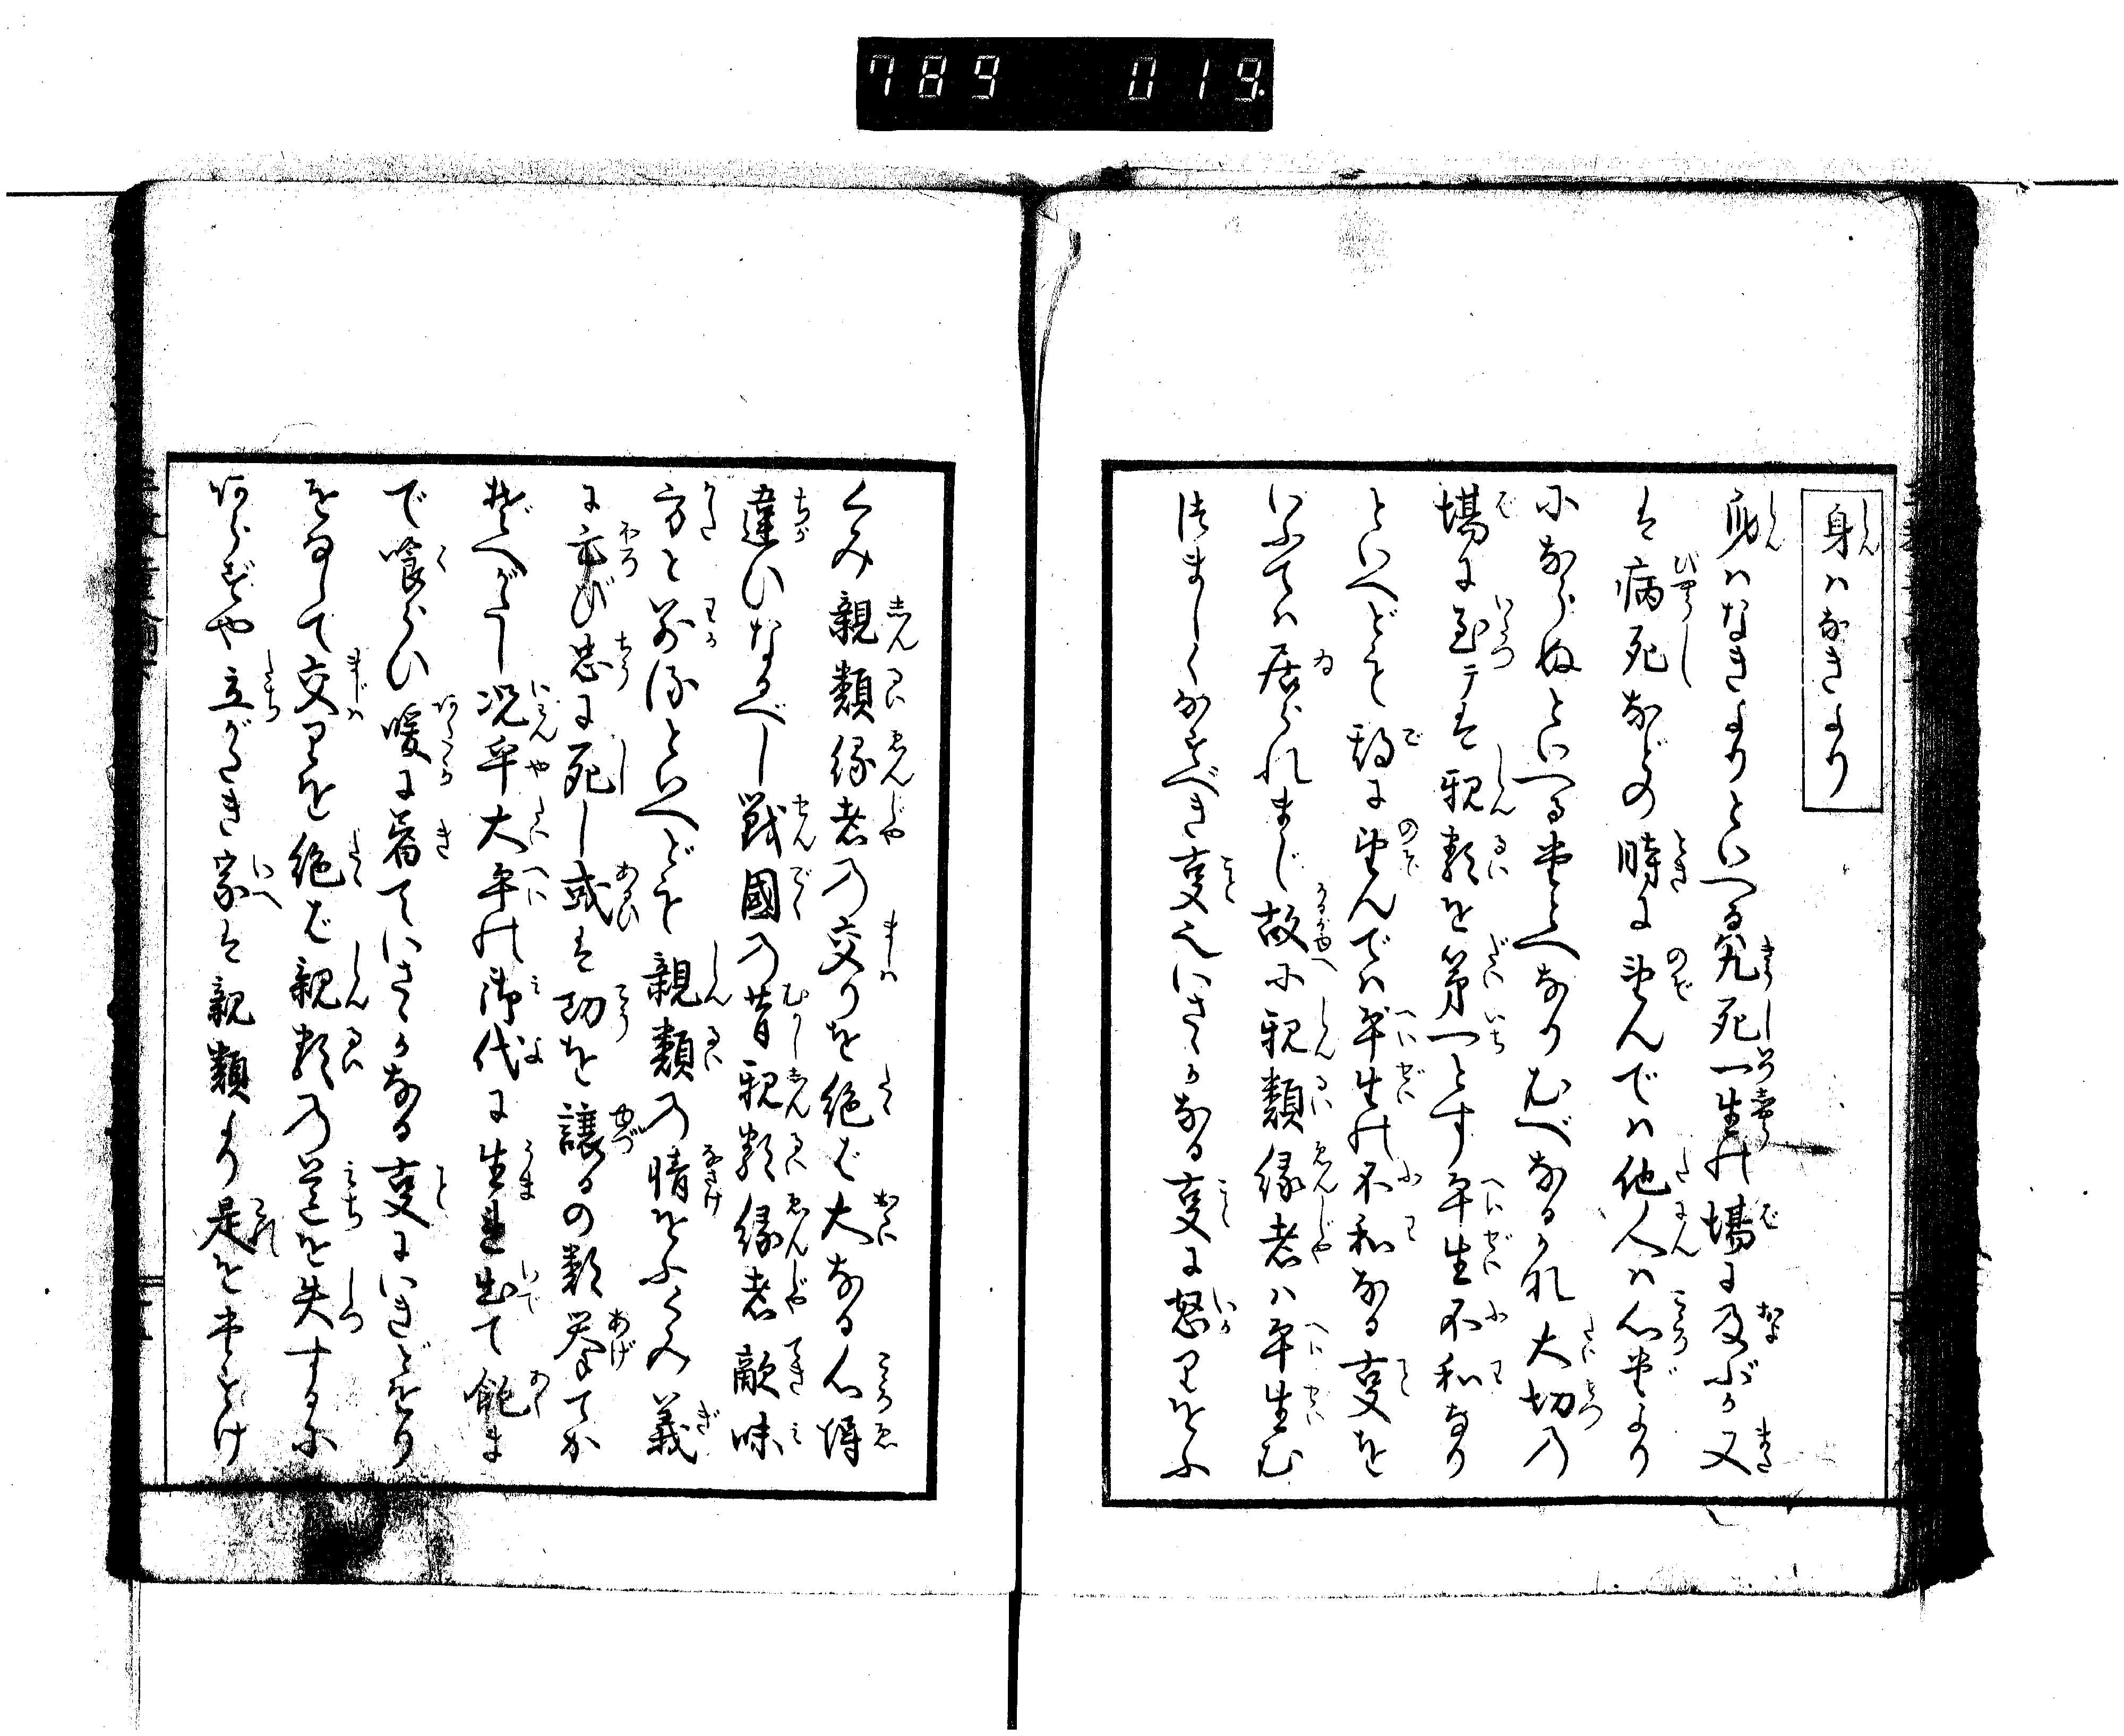 789 019.
身はなきより
身はなきよりといへる九死一生の場に及ぶか又
は病死などの時に望んでは他人は心まより
にならぬといへるたとへなりむべなるかな大切の
場に至ては親類を第一とす平生不和なり
といへども期に望んでは平生の不和なる事を
いふては居られまじ故に親類縁者は平生む
つましくなすべき事也いさゝかなる事に怒りをふ
くみ親類縁者の交りを絶は大なる心得
違ひなるべし戦國の昔親類縁者敵味
方と別るといへども親類の情をふくみ義
に亡び忠に死し或は功を譲るの類挙てか
ぞへがたし况乎大平の御代に生れ出て飽ま
で喰らひ暖に着ていさゝかなる事にいきどをり
をなして交りを絶は親類の道を失するに
あらずや立がたき家は親類より是をたすけ